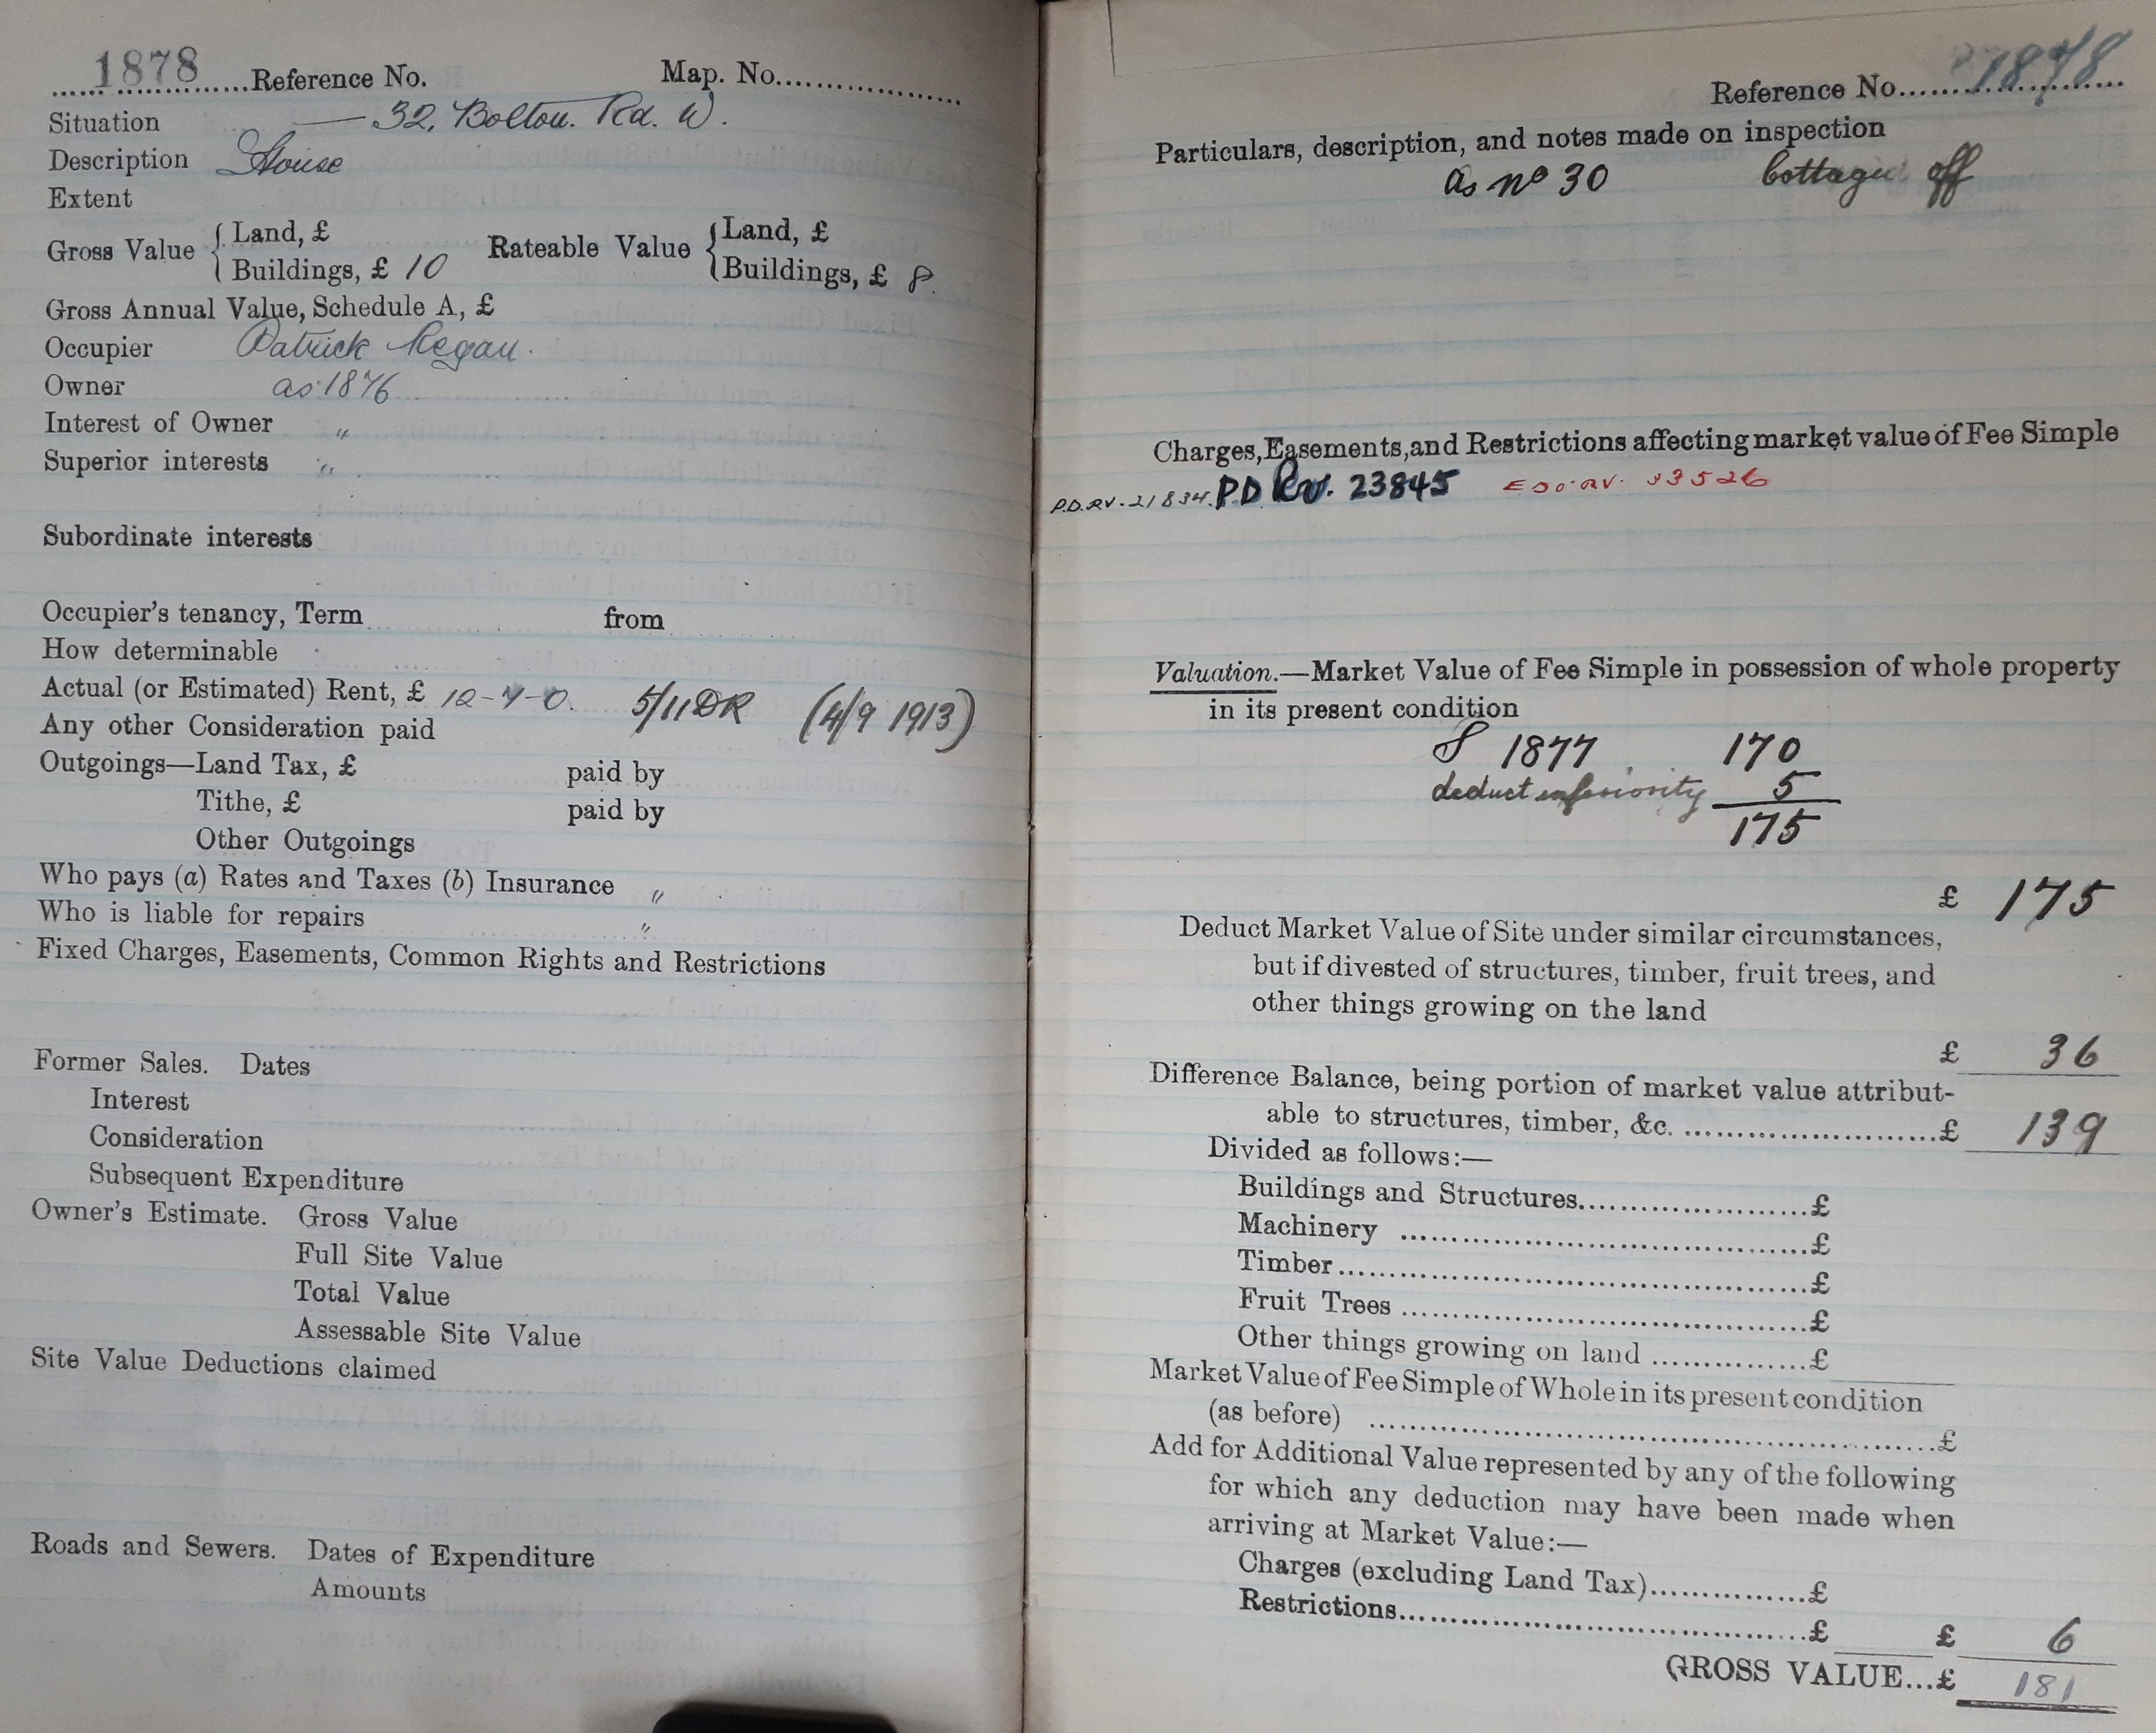 1878 Reference No. Map. No.
Situation — 32, Bolton. Rd. W.
Description House
Extent
Gross Value { Land, £ Rateable Value { Land, £
Buildings, £ 10 Buildings, £ 8.
Gross Annual Value, Schedule A, £
Occupier Patrick Regan.
Owner as 1876
Interest of Owner "
Superior interests "
Subordinate interests
Occupier's tenancy, Term from
How determinable
Actual (or Estimated) Rent, £ 12-7-0. 5/11 DR (4/9 1913)
Any other Consideration paid
Outgoings—Land Tax, £ paid by
Tithe, £ paid by
Other Outgoings
Who pays (a) Rates and Taxes (b) Insurance "
Who is liable for repairs "
Fixed Charges, Easements, Common Rights and Restrictions
Former Sales. Dates
Interest
Consideration
Subsequent Expenditure
Owner's Estimate. Gross Value
Full Site Value
Total Value
Assessable Site Value
Site Value Deductions claimed
Roads and Sewers. Dates of Expenditure
Amounts
Reference No. 1878
Particulars, description, and notes made on inspection
as no 30 Cottages off
Charges, Easements, and Restrictions affecting market value of Fee Simple
P.D.RV. 21834. PD Rv. 23845
Valuation.—Market Value of Fee Simple in possession of whole property
in its present condition
1877 170
deduct inferiority 5
175
£ 175
Deduct Market Value of Site under similar circumstances,
but if divested of structures, timber, fruit trees, and
other things growing on the land
£ 36
Difference Balance, being portion of market value attribut-
able to structures, timber, &c. £ 139
Divided as follows:—
Buildings and Structures £
Machinery £
Timber £
Fruit Trees £
Other things growing on land £
Market Value of Fee Simple of Whole in its present condition
(as before) £
Add for Additional Value represented by any of the following
for which any deduction may have been made when
arriving at Market Value:—
Charges (excluding Land Tax) £
Restrictions £ £ 6
GROSS VALUE...£ 181